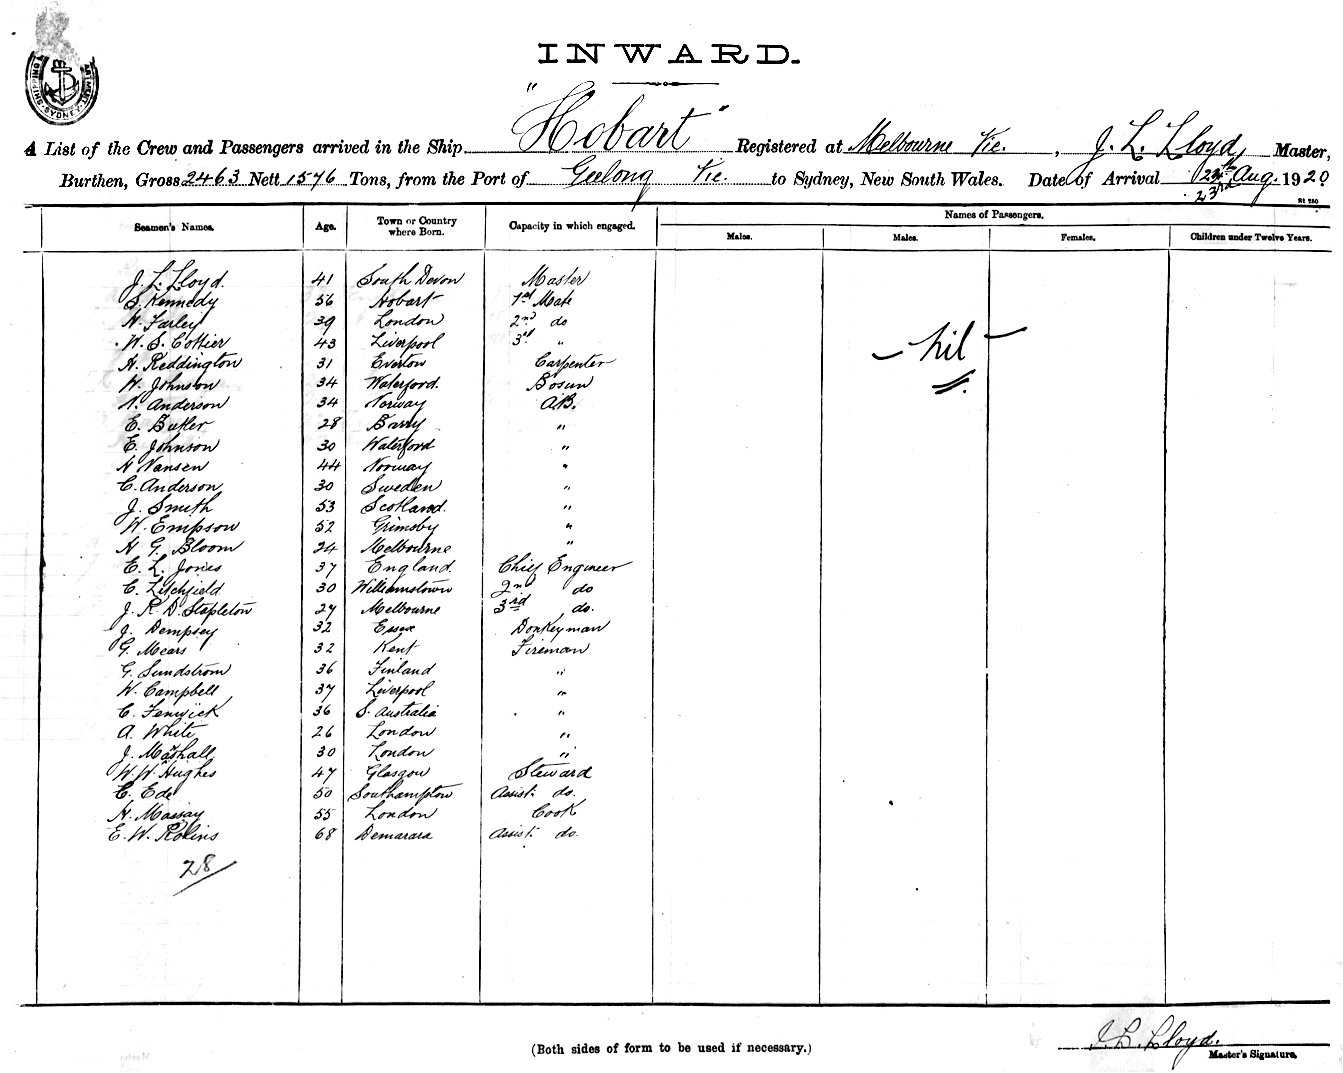 SHIPPING SYDNEY
INWARD.
A List of the Crew and Passengers arrived in the Ship "Hobart" Registered at Melbourne Vic. , J. L. Lloyd Master,
Burthen, Gross 2463 Nett 1576 Tons, from the Port of Geelong Vic. to Sydney, New South Wales. Date of Arrival Aug. 1920
23rd
Names of Passengers.
Seamen's Names. Age. Town or Country where Born. Capacity in which engaged. Males. Males. Females. Children under Twelve Years.
J. L. Lloyd. 41 South Devon Master
S. Kennedy 56 Hobart 1st Mate
H. Farley 39 London 2nd do
W. S. Cottier 43 Liverpool 3rd "
– Nil –
H. Reddington 31 Everton Carpenter
W. Johnson 34 Waterford. Bosun
N. Anderson 34 Norway A.B.
E. Butler 28 Barry "
E. Johnson 30 Waterford "
H Nansen 44 Norway "
C. Anderson 30 Sweden "
J. Smith 53 Scotland. "
W. Empson 52 Grimsby "
H G. Bloom 24 Melbourne "
E. L. Jones 37 England. Chief Engineer
C. Litchfield 30 Williamstown 2nd do
J. R. D. Stapleton 27 Melbourne 3rd do.
J. Dempsey 32 Essex Donkeyman
G. Mears 32 Kent Fireman
G. Sundstrom 36 Finland "
W. Campbell 37 Liverpool "
C. Fenwick 36 S. Australia "
A. White 26 London "
J. Mashall 30 London "
W. W. Hughes 47 Glasgow Steward
C. Ede 50 Southampton Assist. do.
H. Massay 55 London Cook
E. W. Robins 68 Demarara Assist. do.
28
(Both sides of form to be used if necessary.)
J. L. Lloyd.
Master's Signature.